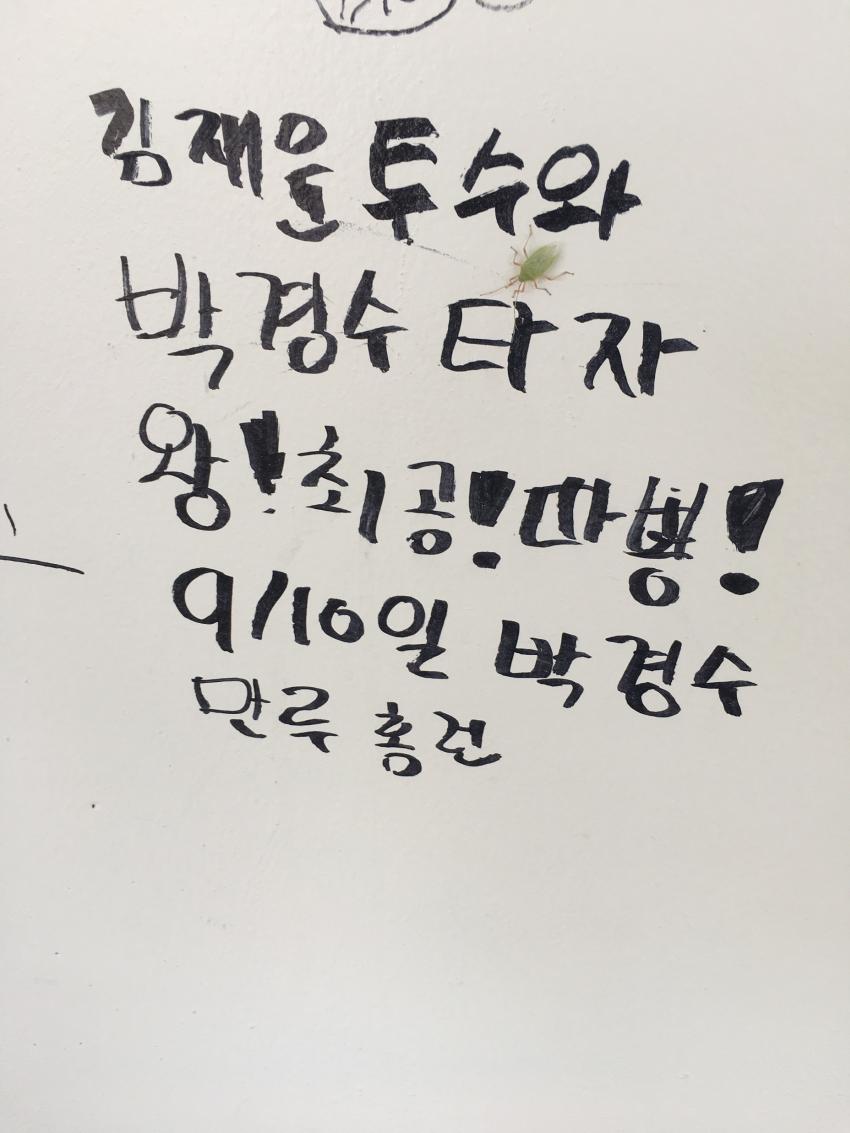 김재윤 투수와
박경수 타자
왕!최공!따봉!
9/10일 박경수
만루 홈런